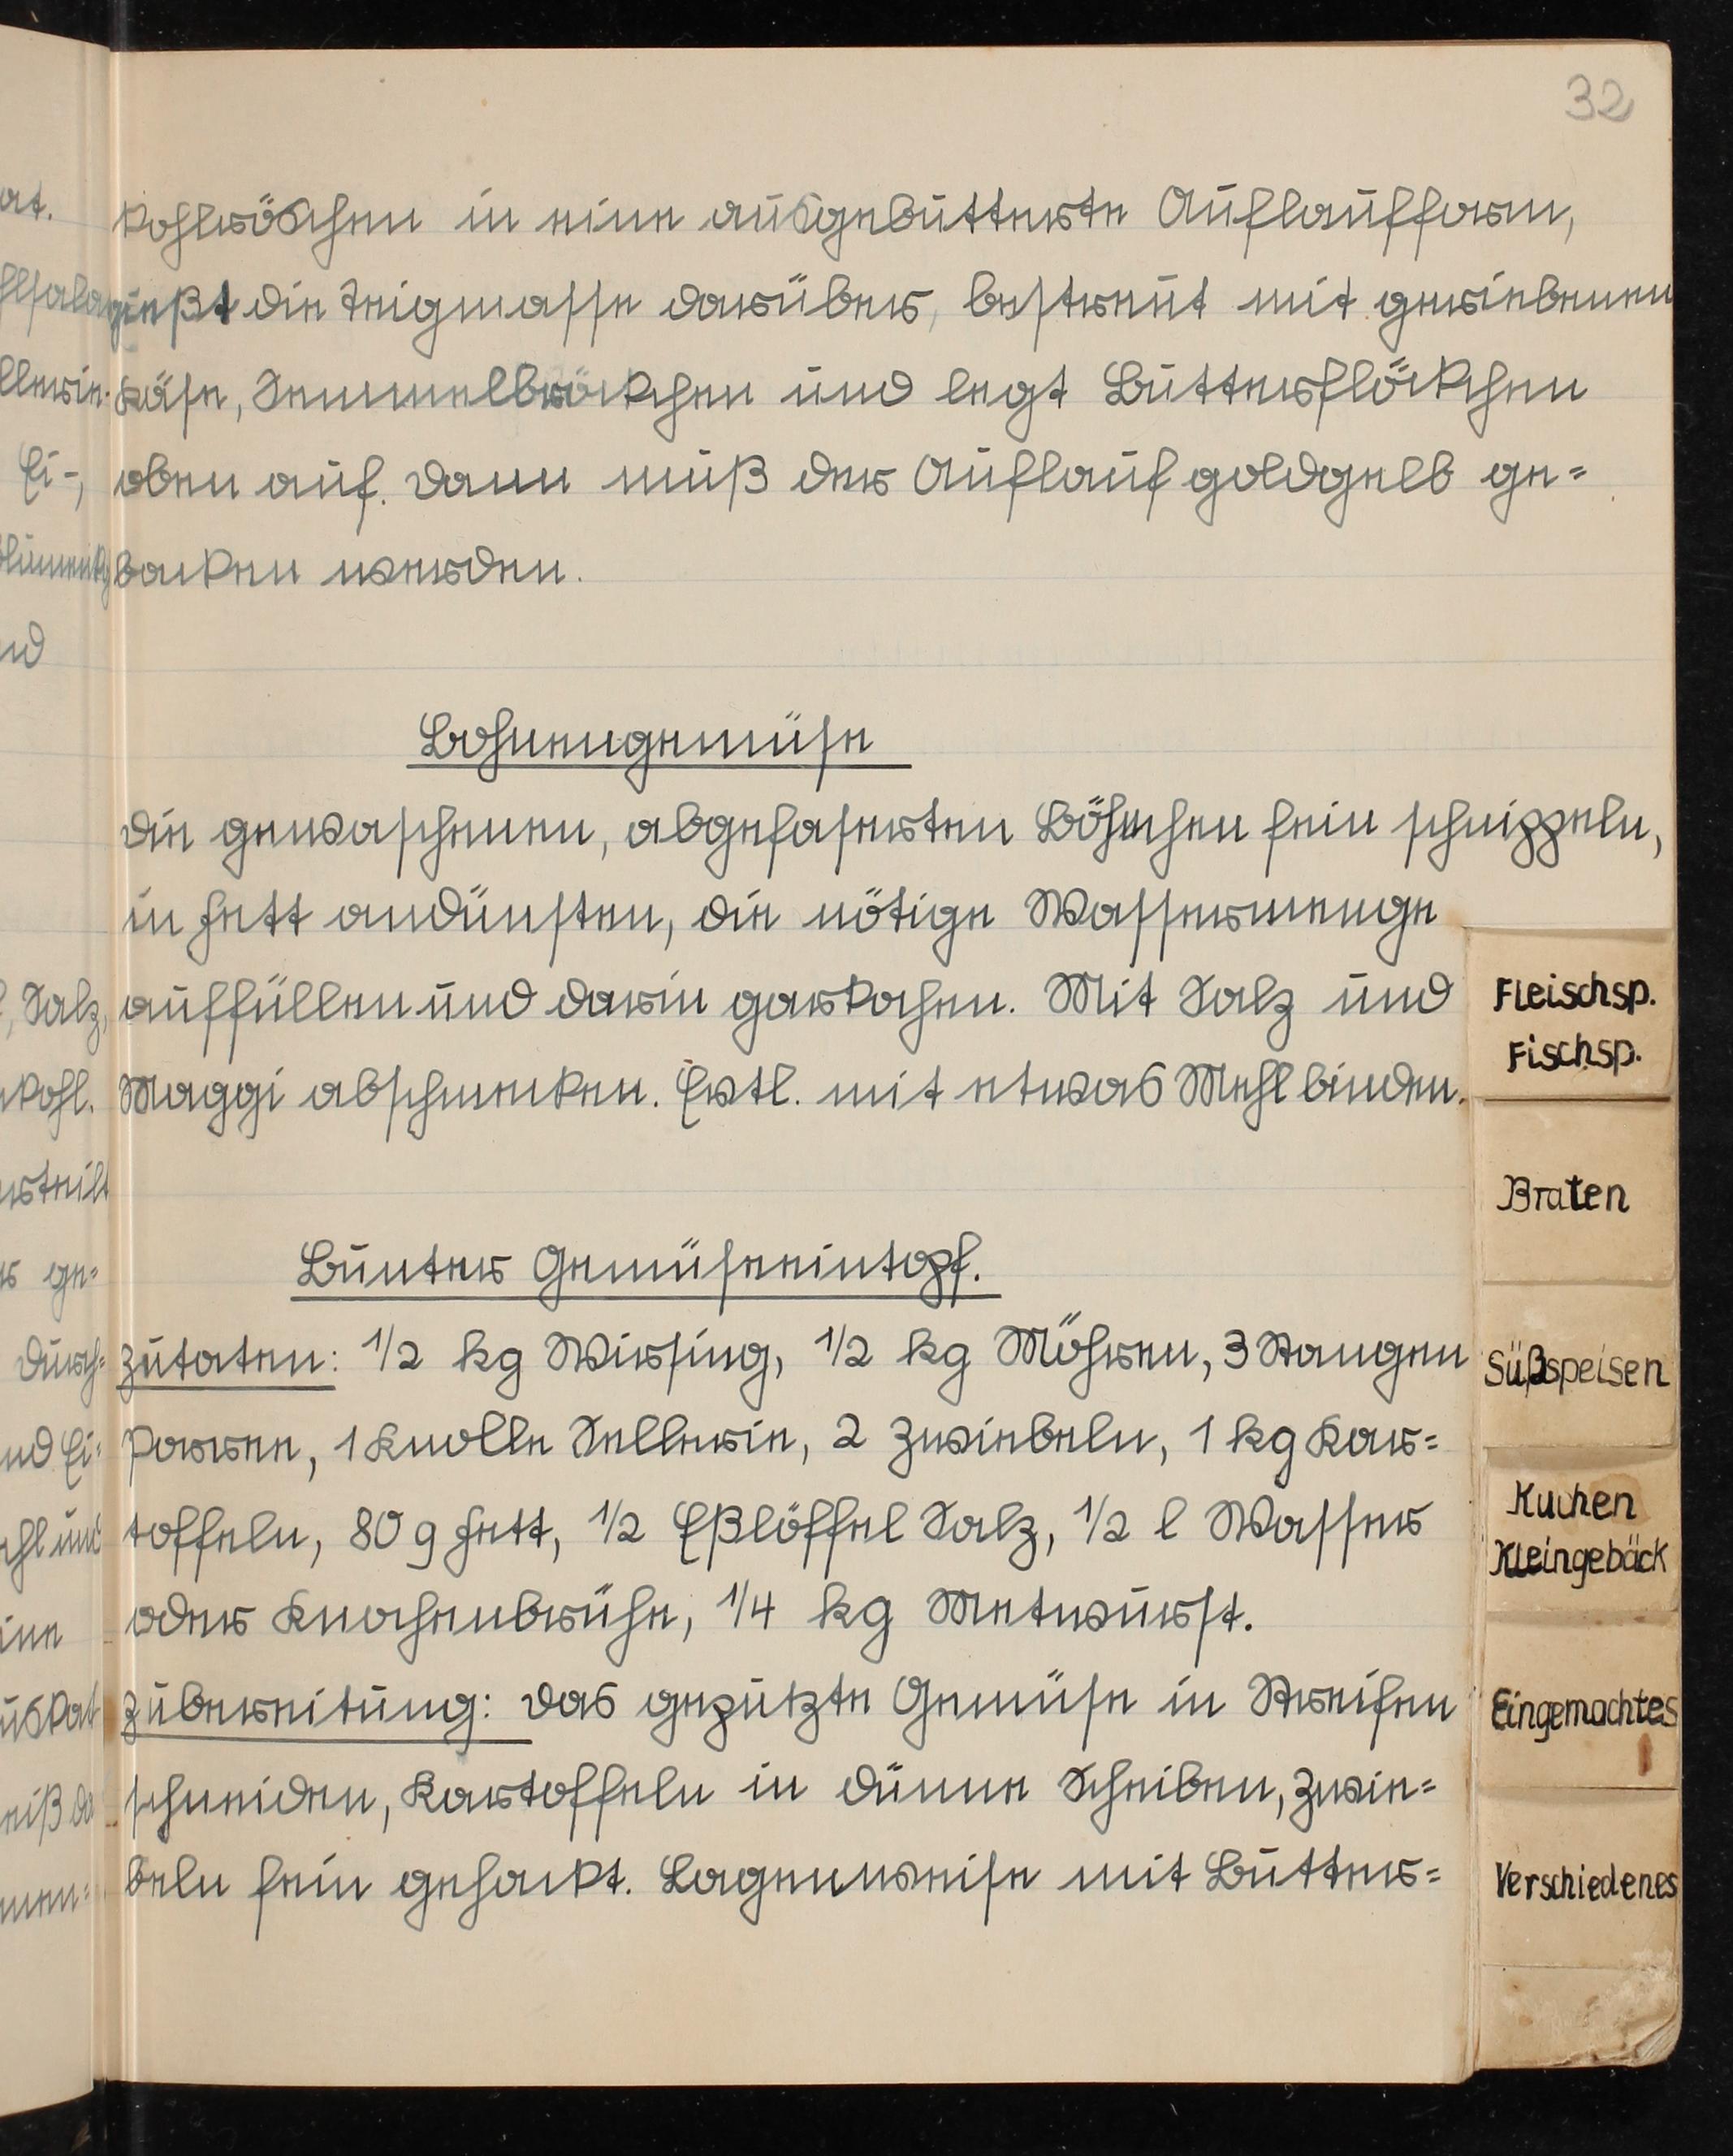 32
kohlröschen in eine ausgebutterte Auflaufform,
gießt die Teigmasse darüber, bestreut mit geriebenen
Käse, Semmelbröckchen und legt Butterflöckchen
oben auf. Dann muß der Auflauf goldgelb ge=
backen werden.
Bohnengemüse
Die gewaschenen, abgefaserten Böhnchen fein schnippeln,
in Fett andünsten, die nötige Wassermenge
auffüllen und darin garkochen. Mit Salz und
Maggi abschmecken. Evtl. mit etwas Mehl binden.
Bunter Gemüseeintopf.
Zutaten: 1/2 kg Wirsing, 1/2 kg Möhren, 3 Stangen
Porree, 1 Knolle Sellerie, 2 Zwiebeln, 1 kg Kar=
toffeln, 80 g Fett, 1/2 Eßlöffel Salz, 1/2 l Wasser
oder Knochenbrühe, 1/4 kg Metwurst.
Zubereitung: Das geputzte Gemüse in Streifen
schneiden, Kartoffeln in dünne Scheiben, Zwie=
beln fein gehackt. Lagenweise mit Butter=
Fleischsp.
Fischsp.
Braten
Süßspeisen
Kuchen
Kleingebäck
Eingemachtes
Verschiedenes